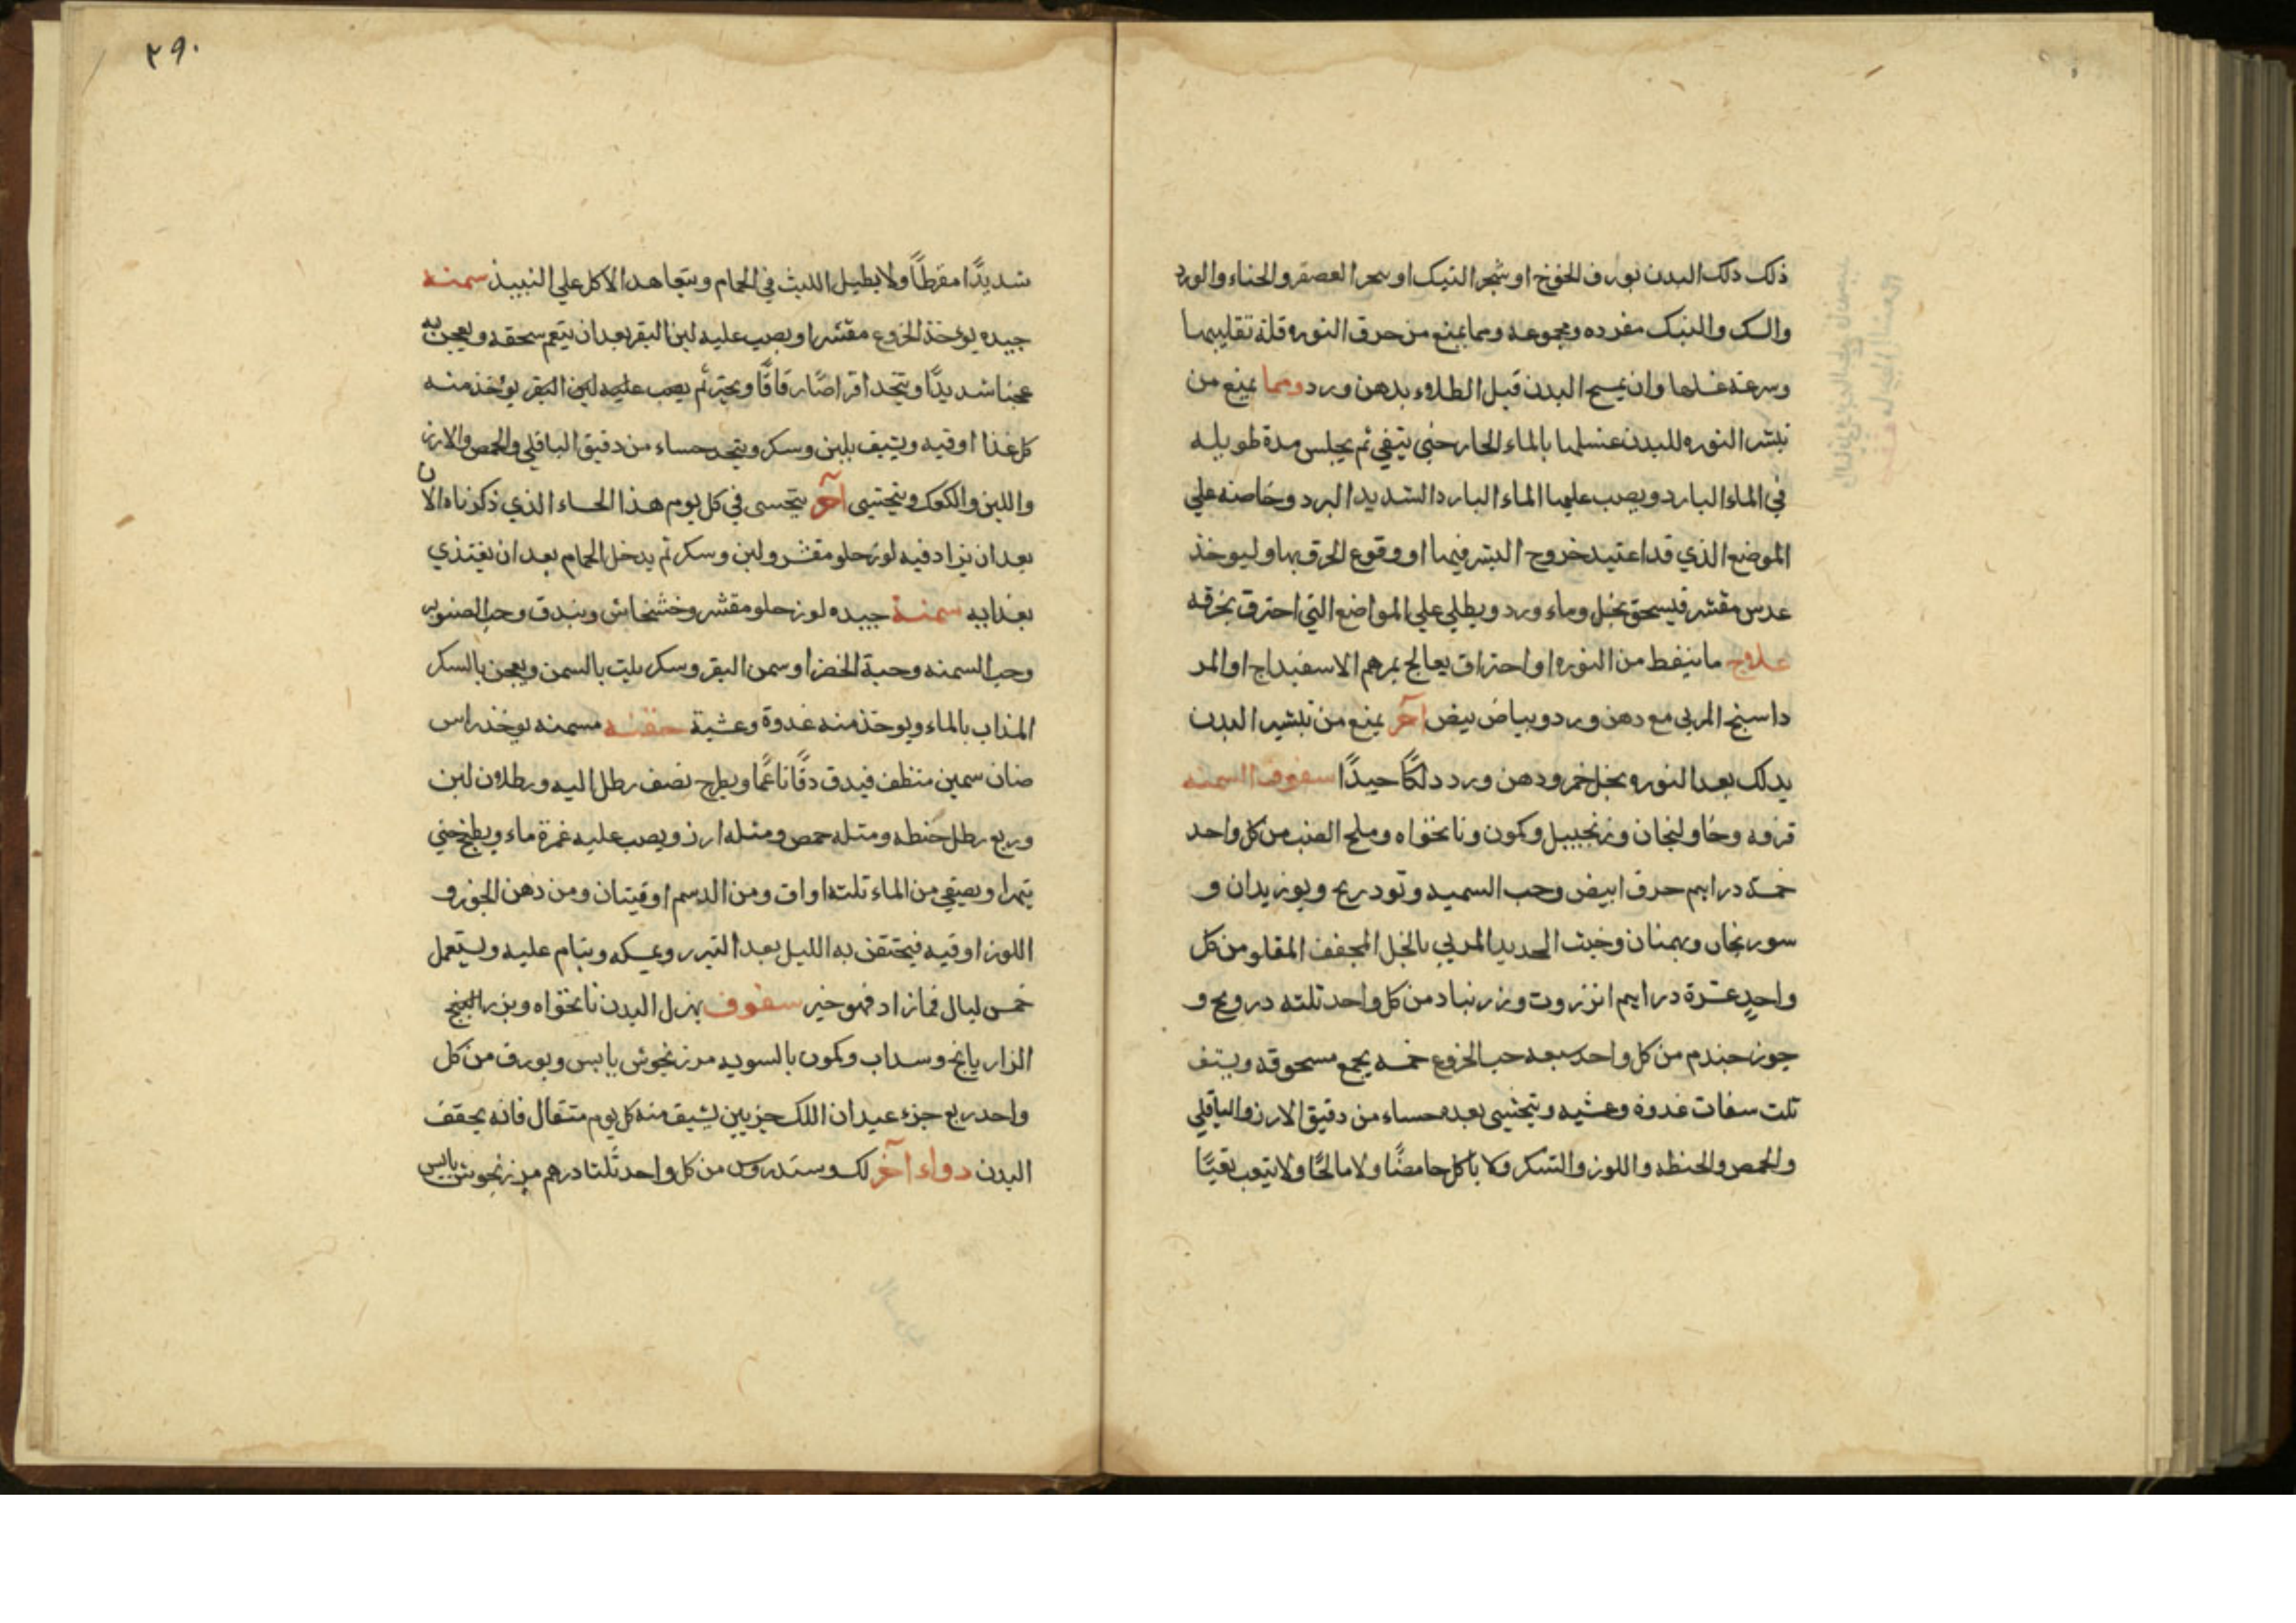 ذلك دلك البدن بورق الخوخ او شجر النبك او سحر العصفر والحناء والورد
والسك والنبك مفرده ومجموعه ومما يمنع من حرق النوره قلة تقليبها
وسرعة غسلها وان يمسح البدن قبل الطلاء بدهن ورد ومما يمنع من
تبثر النوره للبدن غسلها بالماء الحار حتي ينقي ثم يجلس مدة طويله
في الماء البارد ويصب عليها الماء البارد الشديد البرد وخاصه علي
الموضع الذي قد اعتيد خروج البثر فيها او وقوع الحرق بها وليوخذ
عدس مقشر فيسحق بخل وماء ورد ويطلي علي المواضع التي احترق بحرقه
علاج ما ينفط من النوره او احتراق يعالج بمرهم الاسفيداج او المر
داسنج المربي مع دهن ورد وبياض بيض آخر يمنع من تبثير البدن
يدلك بعد النوره بخل خمر ودهن ورد دلكًا جيدًا سفوف السمنه
قرفه وخاولنجان وزنجبيل وكمون ونانخواه وملح العنب من كل واحد
خمسة دراهم حرف ابيض وحب السميد وتودريح وبوزيدان و
سورنجان وبهمنان وخبث الحديد المربي بالخل المجفف المقلو من كل
واحدٍ عشرة دراهم انزروت وزرنباد من كل واحد ثلثه درونج و
جوز جندم من كل واحد سبعه حب الخروع خمسه يجمع مسحوقه ويستف
ثلث سفات غدوة وعشيه ويتحسي بعده حساء من دقيق الارز والباقلي
والحمص والحنطه واللوز والسكر ولا ياكل حامضًا ولا مالحًا ولا يتعب تعبًا
٢٩٠
شديدًا مفرطًا ولا يطيل اللبث في الحمام ويتعاهد الاكل علي النبيذ سمنه
جيده يوخذ الخروع مقشرا ويصب عليه لبن البقر بعد ان ينعم سحقه ويعجن به
عجنا شديدًا ويتخذ اقراصًا رقاقًا ويخبز ثم يصب عليه لبن البقر يوخذ منه
كل غذا اوقيه ويستف بلبن وسكر ويتخذ حساء من دقيق الباقلي والحمص والارز
واللبن والكعك ويتحسي آخر يتحسى في كل يوم هذا الحساء الذي ذكرناه الان
بعد ان يزاد فيه لوز حلو مقشر ولبن وسكر ثم يدخل الحمام بعد ان يغتذي
بغذايه سمنة جيده لوز حلو مقشر وخشخاش وبندق وحب الصنوبر
وحب السمنه وحبة الخضرا وسمن البقر وسكر يلت بالسمن ويعجن بالسكر
المذاب بالماء ويوخذ منه غدوة وعشية حقنه مسمنه يوخذ راس
ضان سمين منظف فيدق دقًا ناعمًا ويطرح نصف رطل اليه ورطلان لبن
وربع رطل حنطه ومثله حمص ومثله ارز ويصب عليه غمرة ماء ويطبخ حتي
يتهرا ويصفي من الماء ثلثه اواق ومن الدسم اوقيتان ومن دهن الجوز و
اللوز اوقيه فيحتقن به الليل بعد التبرر ويمسكه وينام عليه ويستعمل
خمس ليال فما زاد فهو خير سفوف يهزل البدن نانخواه وبزر البنج
الرازيانج وسداب وكمون بالسويه مرزنجوش يابس وبورق من كل
واحد ربع جزء عيدان اللك جزيين يستف منه كل يوم مثقال فانه يجفف
البدن دواء آخر لك وسندروس من كل واحد ثلثا درهم مرزنجوش يابس